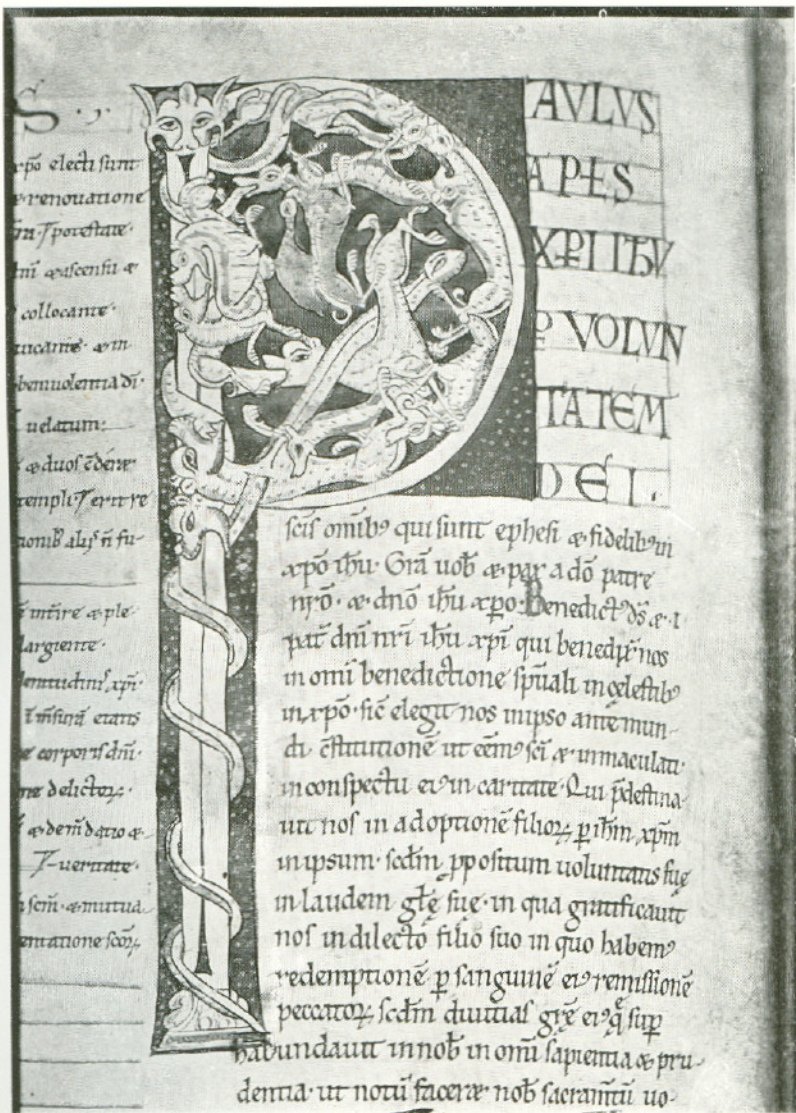 S ·,·
xp̄o electi sunt
renouatione
potestate·
dn̄i & ascensu &
collocante·
uicante· & in
beniuolentia dī·
uelatum:
& duos
templi
n̄ fu
intire & ple
largiente·
plenitudinis xp̄i·
etatis
corporis dn̄i·
delictoꝝ·
& dem datio &
ueritate·
scm̄· & mutua
entatione scōꝝ·
PAVLVS
APLS
XP̄I IHV
P VOLVN
TATEM
DEI.
sc̄is omib; qui sunt ephesi & fidelib; in
xp̄o ihu· Grā uob̄ & pax a dō patre
nr̄o· & dn̄o ihu xp̄o· Benedict; ds̄ &
pat̄ dn̄i nr̄i ihu xp̄i qui benedix̄ nos
in omi benedictione sp̄uali in cęlestib;
in xp̄o· sic̄ elegit nos in ipso ante mun
di c̄stitutionē ut eēm; sc̄i & inmaculati·
in conspectu ei; in caritate· Qui p̄destina
uit nos in adoptionē filioꝝ ꝑ ihm̄ xp̄m
in ipsum· scdm̄ ꝓpositum uoluntatis suę
in laudem gl̄ę suę· in qua gratificauit
nos in dilecto filio suo in quo habem;
redemptionē ꝑ sanguinē ei; remissionē
peccatoꝝ scdm̄ diuitias gr̄ę ei; q̄ sup̄
habundauit in nob̄ in omi sapientia & pru-
dentia· ut notū faceret nob̄ sacram̄tū uo-